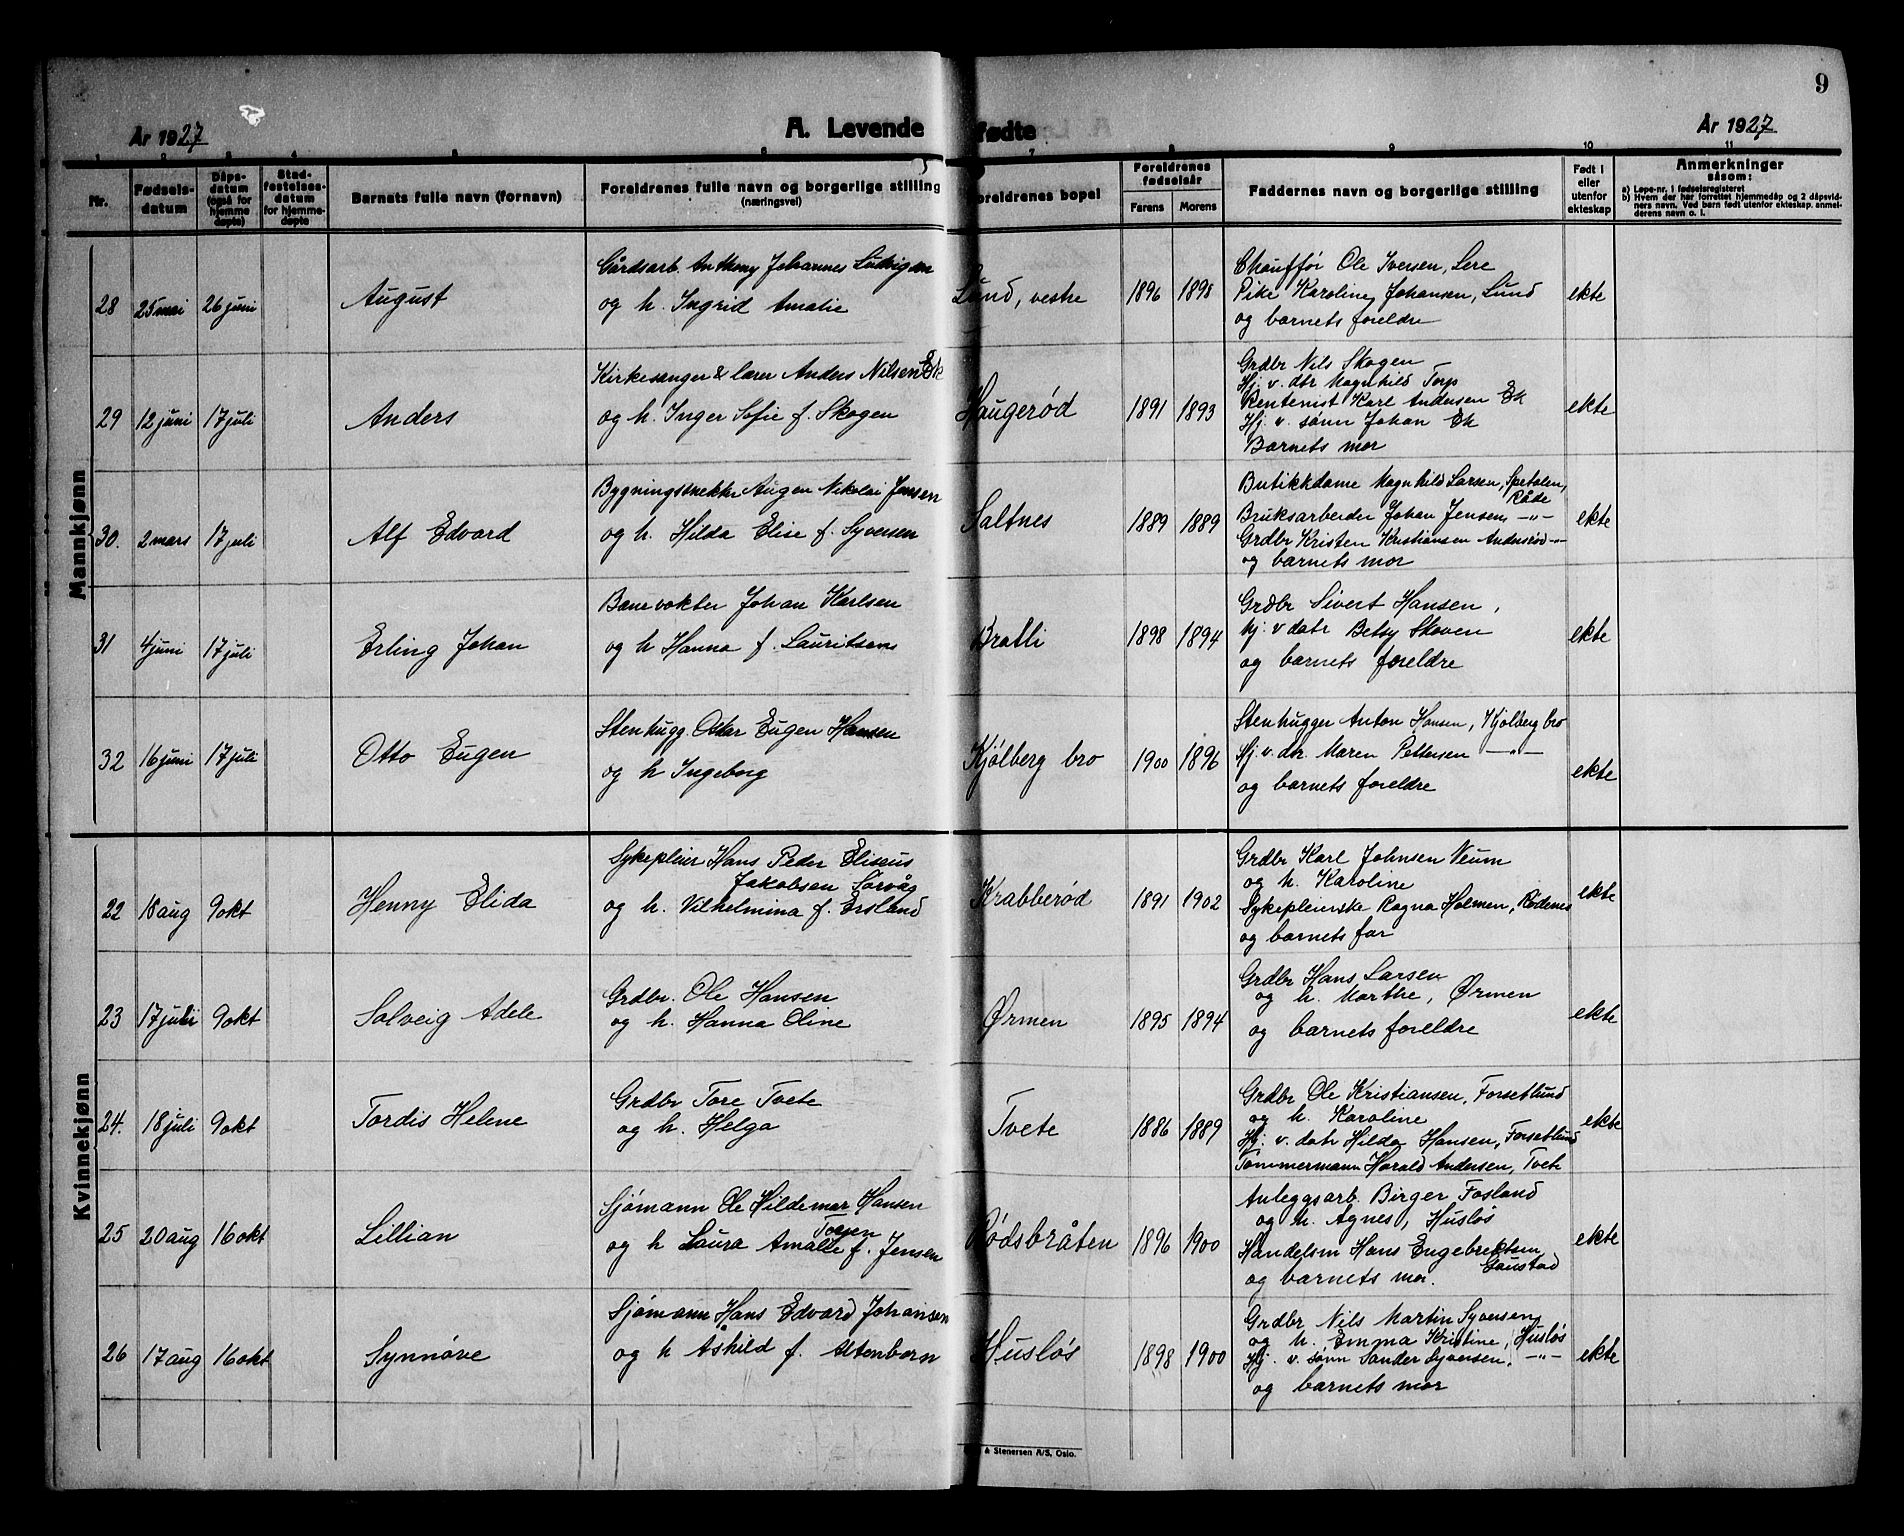 9
År 1927
A. Levende fødte
År 1927
1 2 3 4 5 6 7 8 9 10 11
Nr.
Fødselsdatum
Dåpsdatum (også for hjemmedøpte)
Stadfestelsesdatum for hjemmedøpte
Barnets fulle navn (fornavn)
Foreldrenes fulle navn og borgerlige stilling (næringsvei)
Foreldrenes bopel
Foreldrenes fødselsår
Farens Morens
Faddernes navn og borgerlige stilling
Født i eller utenfor ekteskap
Anmerkninger såsom:
a) Løpe-nr. i fødselsregisteret
b) Hvem der har forrettet hjemmedåp og 2 dåpsvidners navn. Ved barn født utenfor ekteskap, anmelderens navn o. l.
Mannkjønn
28 25 mai 26 juni August
Gårdsarb. Anthony Johannes Ludvigsen
og h. Ingrid Amalie
Lund, vestre 1896 1898
Chauffør Ole Iversen, Lere
Pike Karoline Johansen, Lund
og barnets foreldre
ekte
29 12 juni 17 juli Anders
Kirkesanger & lærer Anders Nilsen Ek
og h. Inger Sofie f. Skogen
Haugerød 1891 1893
Grdbr Nils Skogen
Hj. v. dtr Magnhild Torp
Rentenist Karl Andersen Ek
Hj. v. sønn Johan Ek
Barnets mor
ekte
30. 2 mars 17 juli Alf Edvard
Bygningssnekker Augen Nikolai Jensen
og h. Hilda Elise f. Syversen
Saltnes 1889 1889
Butikkdame Magnhild Larsen, Spetalen, Råde
Bruksarbeider Johan Jensen -"-
Grdbr Kristen Kristiansen Anderød -"-
og barnets mor
ekte
31 4 juni 17 juli Erling Johan
Banevokter Johan Karlsen
og h Hanna f. Lauritsen
Bratli 1898 1894
Grdbr Sivert Hansen,
hj. v datr Betsy Skoven
og barnets foreldre
ekte
32 16 juni 17 juli Otto Eugen
Stenhugg. Oskar Eugen Hansen
og h Ingeborg
Kjølberg bro 1900 1896
Stenhugger Anton Hansen, Kjølberg bro
Hj. v. dtr. Maren Pettersen -"-
og barnets foreldre
ekte
Kvinnekjønn
22 18 aug 9 okt Henny Elida
Sykepleier Hans Peder Eliseus
Jakobsen Sørvåg
og h. Vilhelmina f. Ersland
Krabberød 1891 1902
Grdbr Karl Johnsen Neum
og h. Karoline
Sykepleierske Ragna Holmen, Rødenes
og barnets far
ekte
23 17 juli 9 okt Solveig Adele
Grdbr. Ole Hansen
og h. Hanna Oline
Ørmen 1895 1894
Grdbr Hans Larsen
og h. Marthe, Ørmen
og barnets foreldre
ekte
24. 18 juli 9 okt Tordis Helene
Grdbr Tore Tvete
og h. Helga
Tvete 1886 1889
Grdbr Ole Kristiansen, Forsetlund
og h. Karoline
Hj. v. datr Hilda Hansen, Forsetlund
Tømmermann Harald Andersen, Tvete
ekte
25 20 aug 16 okt Lillian
Sjømann Ole Hildemar Hansen
og h Laura Amalie f. Jensen
Rødsbråten 1896 1900
Anleggsarb. Birger Fosland
og h. Agnes, Husløs
Handelsm Hans Engebretsen
Gaustad
og barnets mor.
ekte
26 17 aug 16 okt Synnøve
Sjømann Hans Edvard Johansen
og h Askild f. Altenborn
Husløs 1898 1900
Grdbr Nils Martin Syversen
og h. Emma Kristine, Husløs
Hj. v. sønn Sander Syversen, -"-
og barnets mor
ekte
& Stenersen A/S, Oslo.